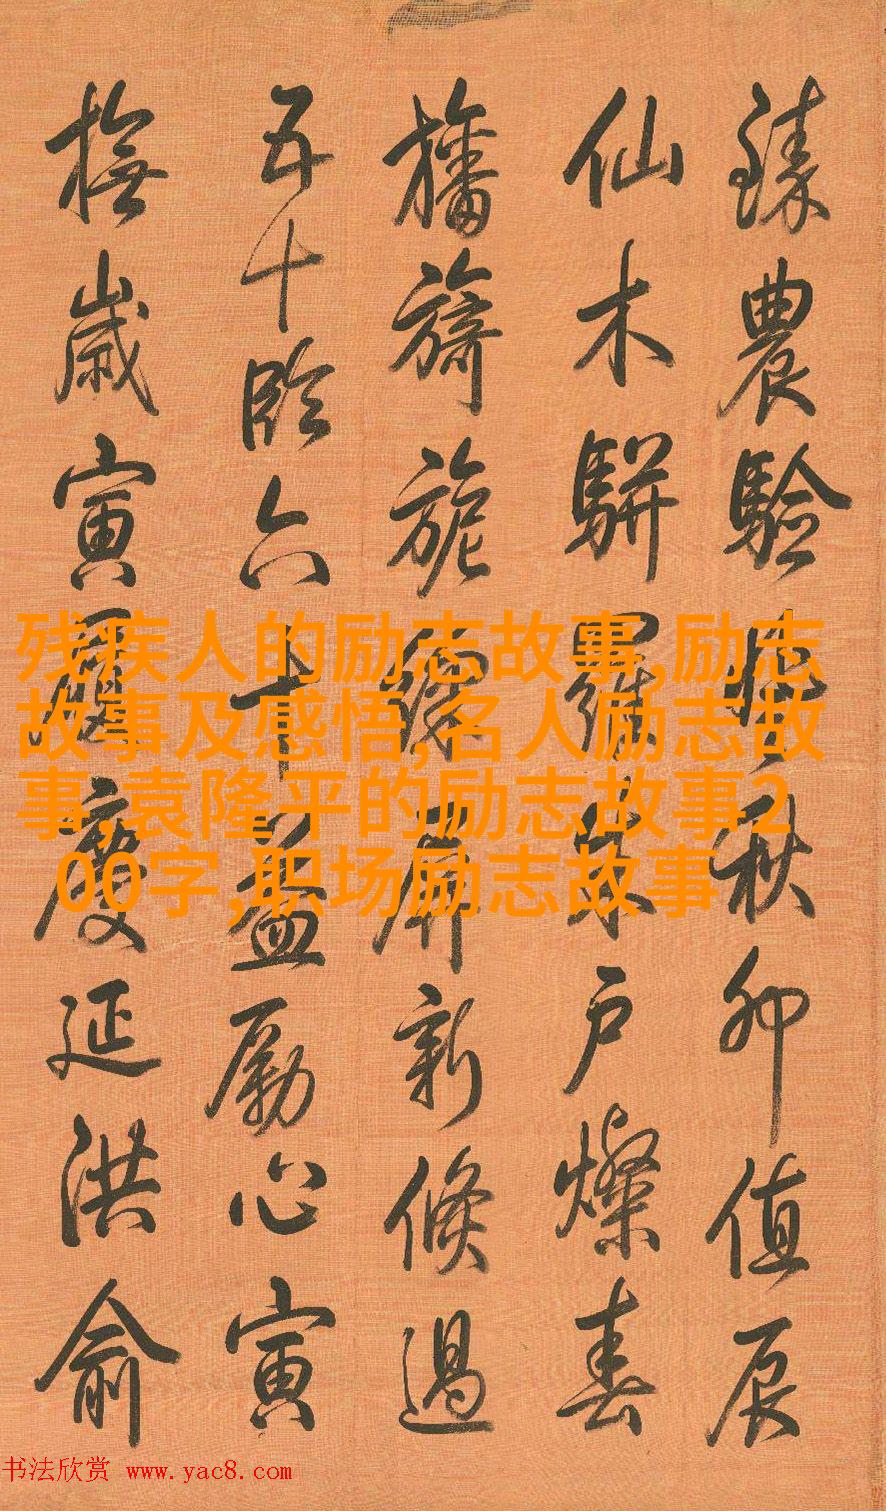 臻農驗秋卯值辰
仙木駢羅朱戶燦春
旛旖旎綵屏新倏過
五十臨六十益勵心寅
撫歲寅慶延洪俞
残疾人的励志故事,励志
故事及感悟,名人励志故
事,袁隆平的励志故事2
00字,职场励志故事
书法欣赏 www.yac8.com